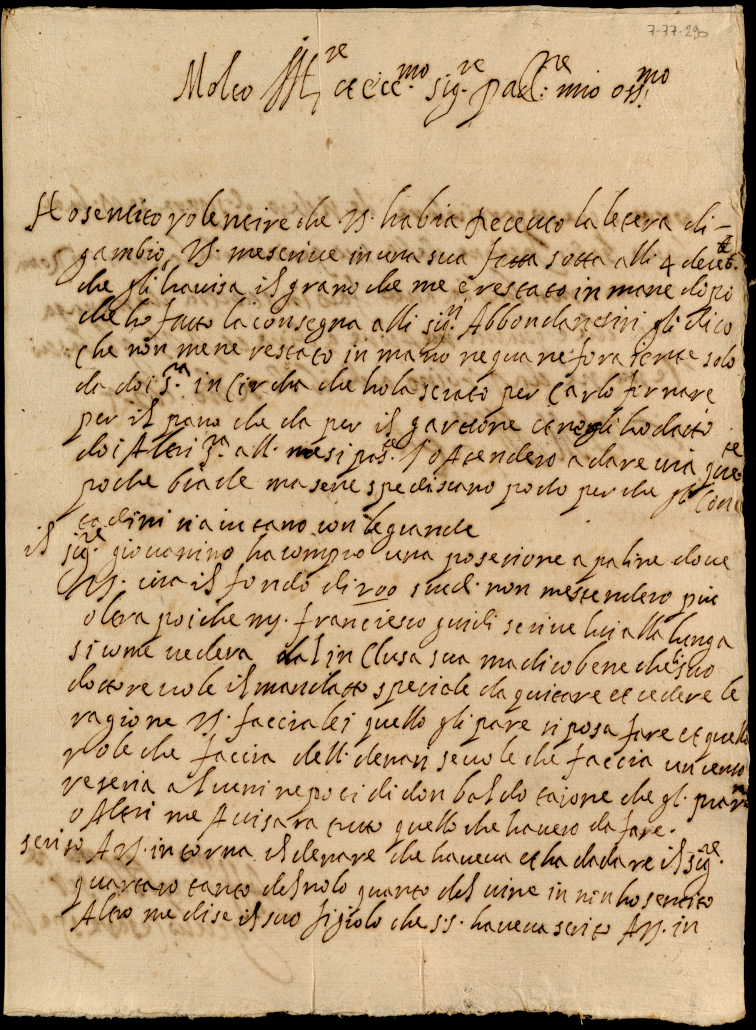 7-77-290
Molto Ill.re et ecc.mo sig.re pad.ne mio oss.mo
Ho sentito volentire che VS. habia receuto la letera di
gambio, VS. me scrive in una sua fatta sotta alli 4 deceb.
che gli havisa il grano che me è restato in mane dopo
che ho fatto la consegna alli sig.ri Abbondanesiri gli dico
che non me ne restato in mano ne qua ne fora rente solo
da doi s.ra in circha che ho lasciato per Carlo fornare
per il pano che da per il garzone et negli ho dato
doi Altri s.ra all. mesi pas.te Io Atendero a dare via queste
poche biade ma se ne spediscano poche per che gli Con
tadini si aiutano con le guande
il sig.re giovanino ha compro una posesione a paline dove
VS. via il fondo di 100 scudi non me stendero piu
oltra poiche ms. franciesco guidi scrive lui alla lunga
si come vedera dal in Clusa sua ma dico bene che il suo
dottore vole il mandatto speciale da quitare et cedere le
ragione VS. faccia lei quello gli pare si posa fare et quello
vole che faccia delli denari se vole che faccia un censo
vi seria alcuni nepoti di don baldo taione che gl.
o Altri me Avisara tutto quello che havero da fare.
scrito A VS. intorna il denare che haveva et ha da dare il sig.re
quartaro tanto del nolo quanto del vine in non ho sentito
Altro me dise il suo figiolo che s.s. haveva scrito A VS. in